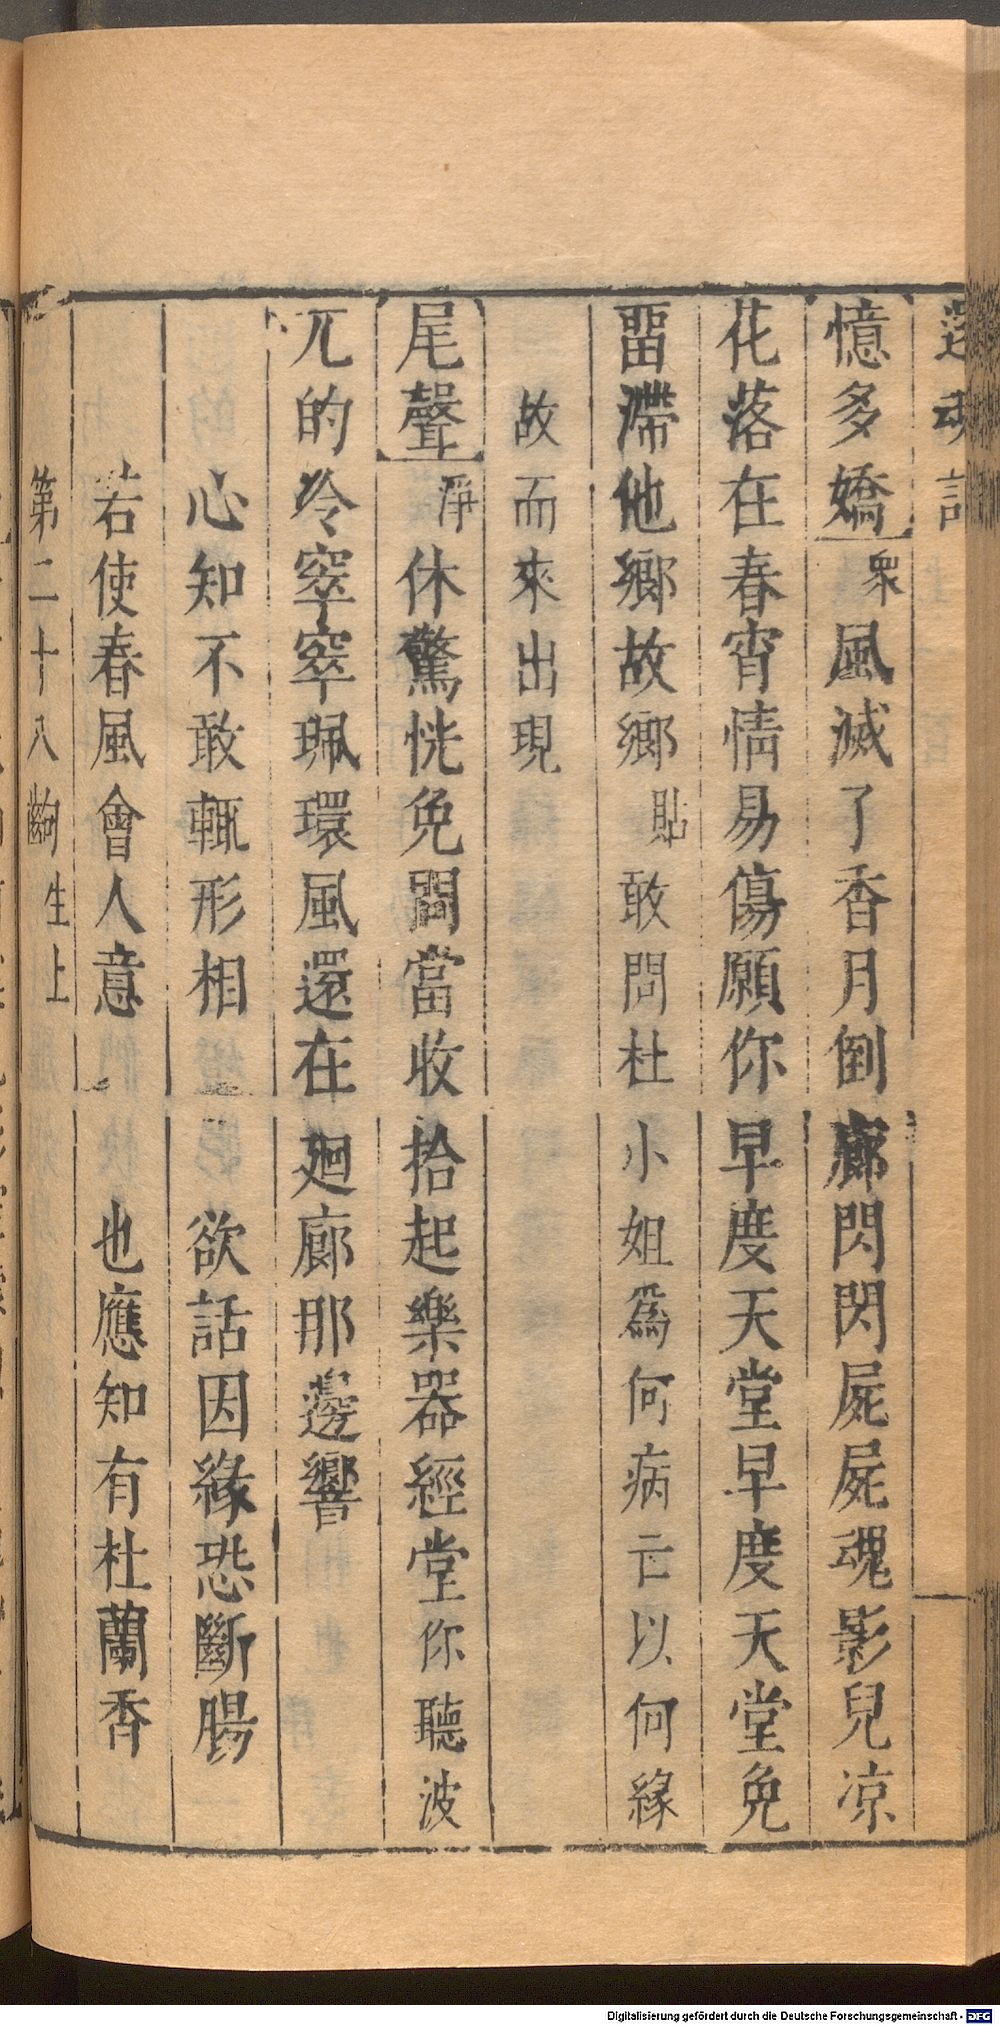 還魂記
憶多嬌衆風滅了香月倒廊閃閃屍屍魂影兒凉
花落在春宵情易傷願你早度天堂早度天堂免
畱滯他鄉故鄉貼敢問杜小姐爲何病亡以何緣
故而來出現
尾聲淨休驚恍免問當收拾起樂器經堂你聽波
兀的冷窣窣珮環風還在廻廊那邊響
心知不敢輒形相　欲話因緣恐斷腸
若使春風會人意　也應知有杜蘭香
第二十八齣生上
Digitalisierung gefördert durch die Deutsche Forschungsgemeinschaft - DFG